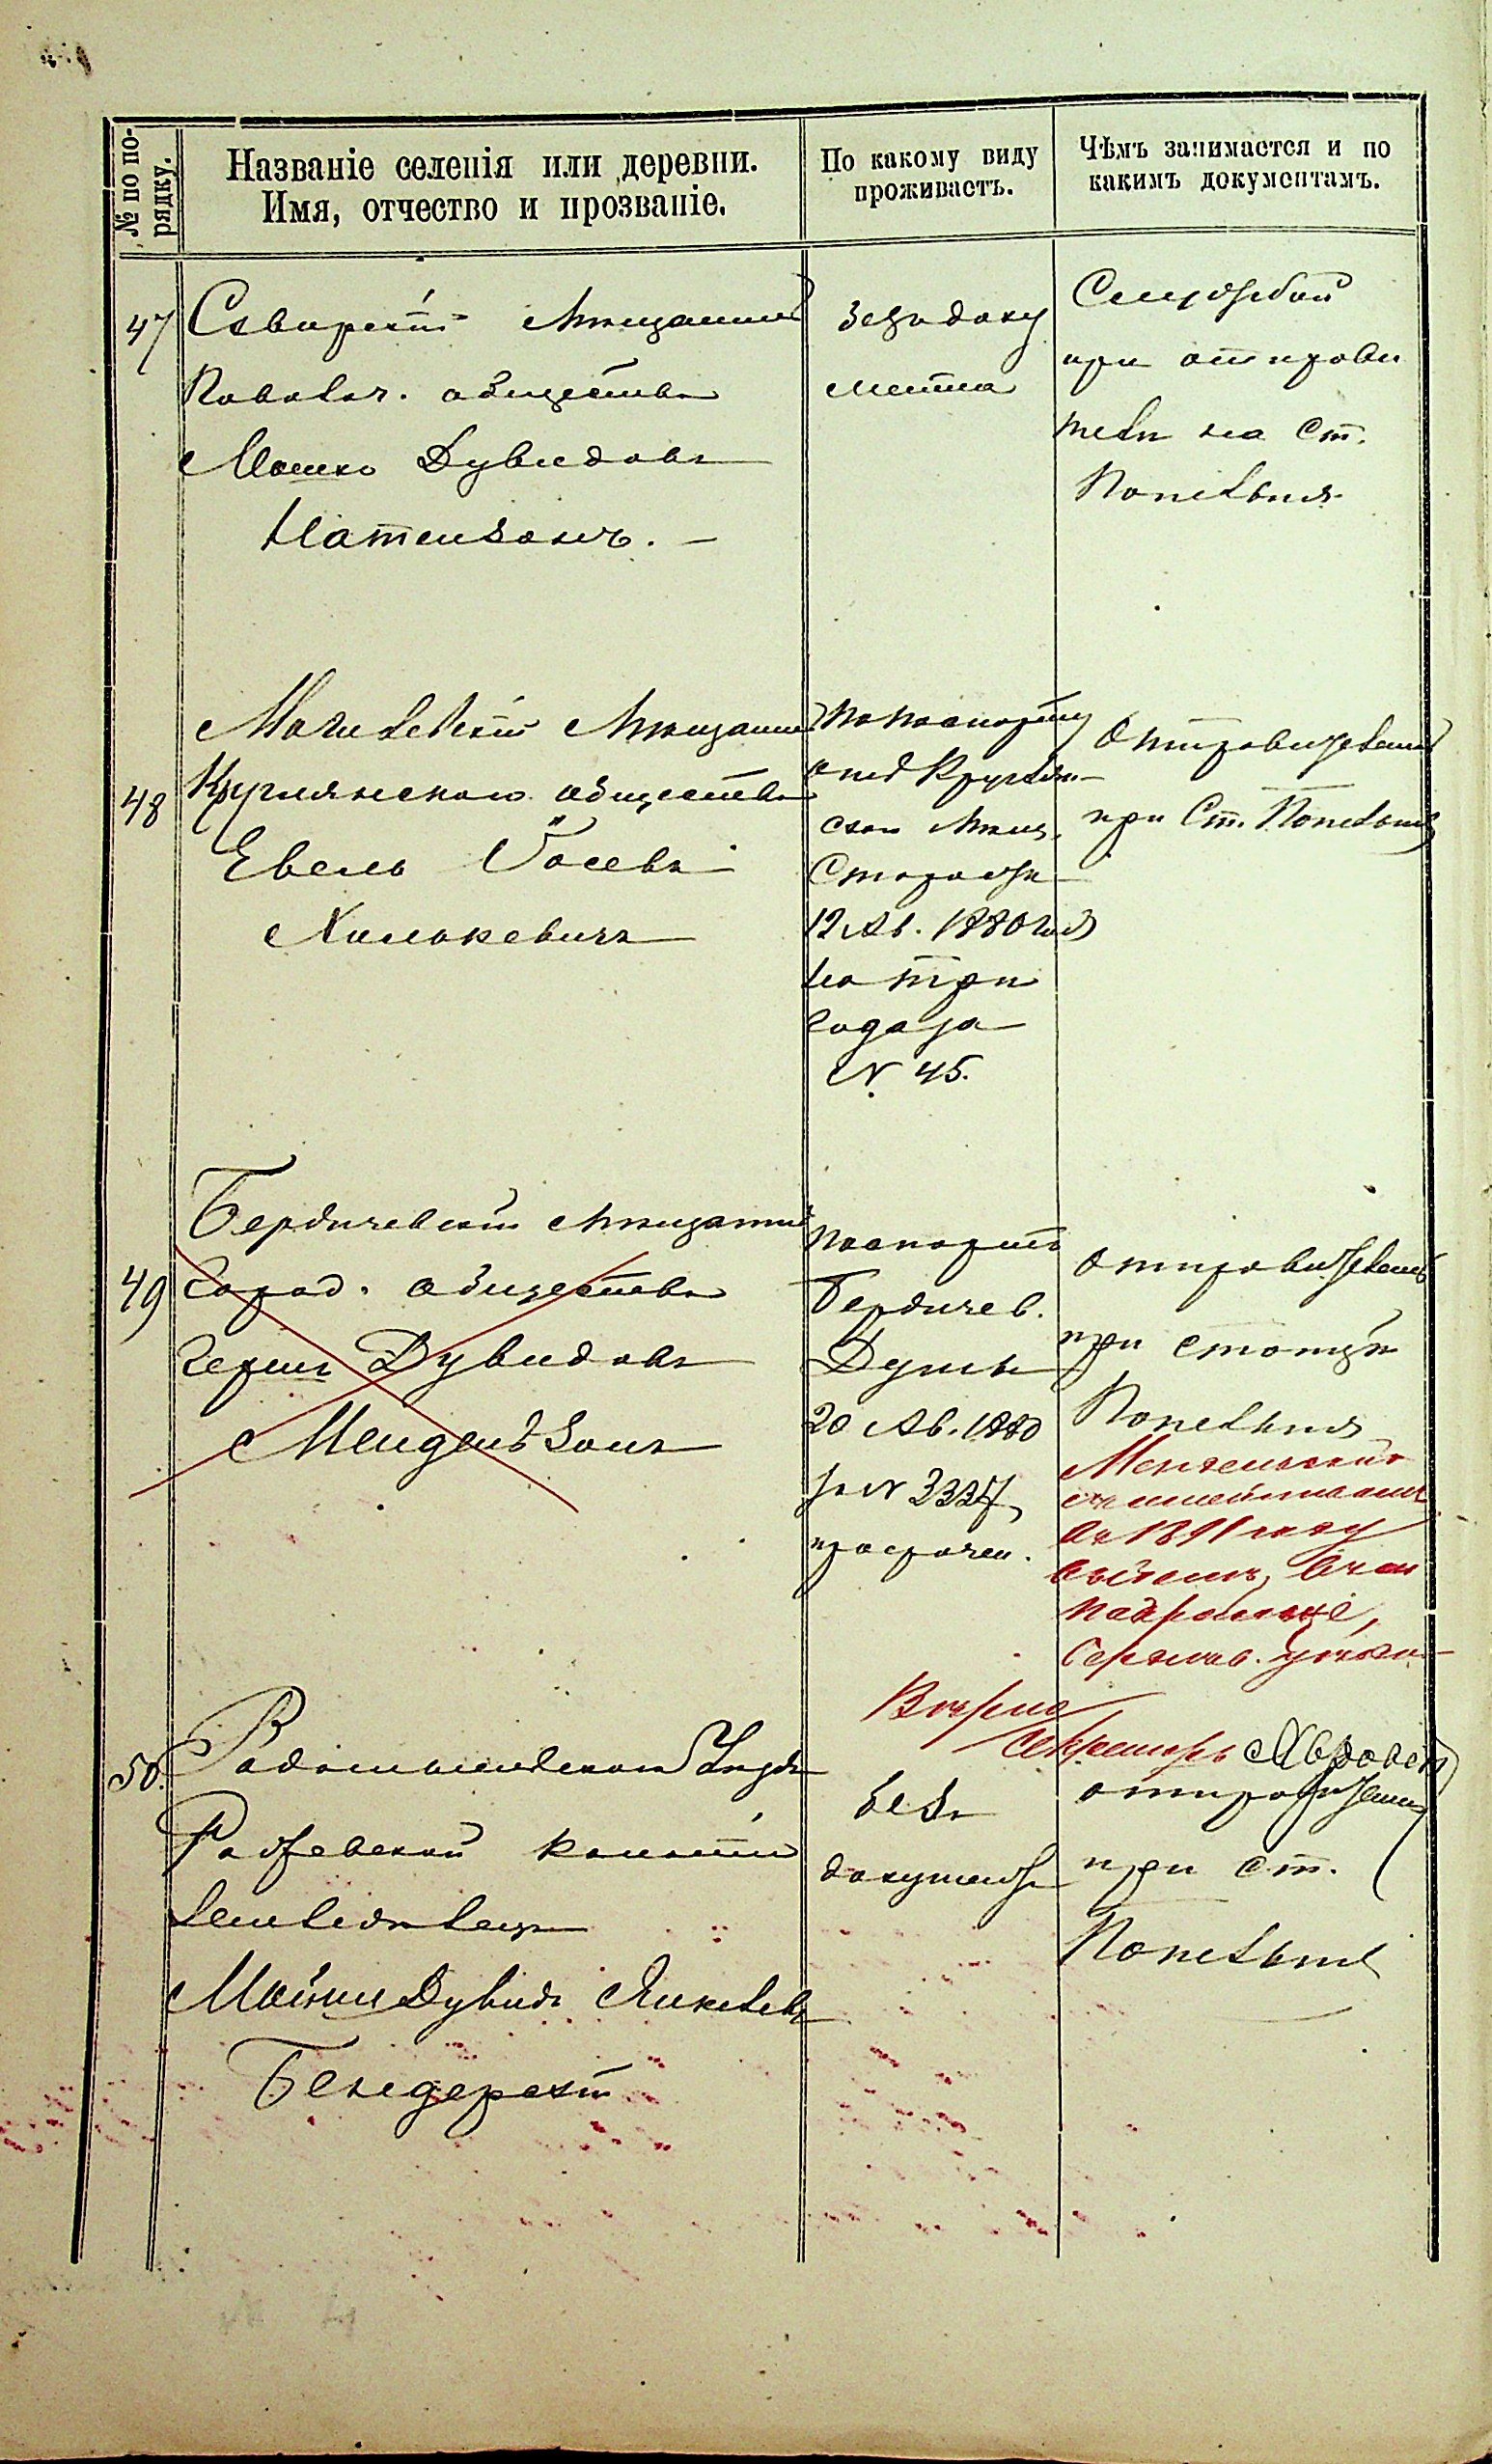 № по по-
рядку.
Названіе селенія или деревни.
Имя, отчество и прозваніе.
По какому виду
проживаетъ.
Чѣмъ занимается и по
какимъ документамъ.
47
Сквирскій мѣщанинъ
Паволоч. общества
Мошко Дувидовъ
Натензонъ. —
безъ доку
мента
Службой
при отправи
телѣ на Ст.
Попельня
48
Могилевскій мѣщанинъ
Круглянскаго общества
Евель Іосевъ
по паспорту
отъ Круглян-
ской мѣщ.
Старосты
12 Ав. 1880 года
на три
года за
№ 45.
Отправитель
при Ст. Попельня
49
Бердичевскій мѣщанинъ
Город. общества
Герш Дувидовъ
Мендельзонъ
паспортъ
Бердичев.
Думы
20 Ав. 1880
за № 3327
просрочен.
Отправитель
при станціи
Попельня
Мендельзонъ
въ 1891 году
Вѣрно
Секретарь
50.
Радомысльскаго уѣзда
колоніи
земледѣлецъ
Дувидъ
Бендерскій
безъ
документа
отправитель
при ст.
Попельня